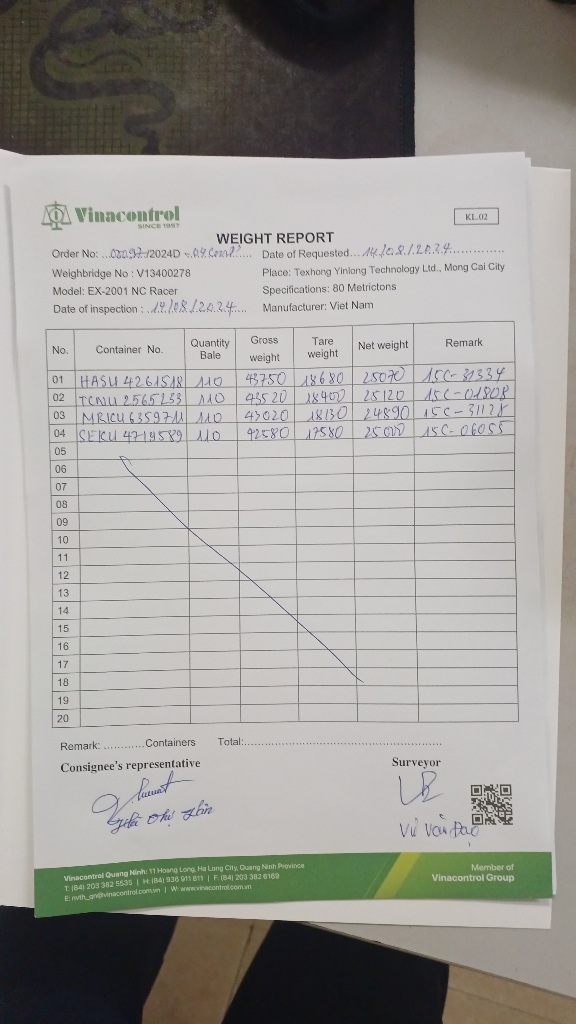 Vinacontrol
SINCE 1957
KL.02
WEIGHT REPORT
Order No: /2024D Date of Requested 14/08/2024
Weighbridge No : V13400278 Place: Texhong Yinlong Technology Ltd., Mong Cai City
Model: EX-2001 NC Racer Specifications: 80 Metrictons
Date of inspection : 14/08/2024 Manufacturer: Viet Nam
No. Container No. Quantity Bale Gross weight Tare weight Net weight Remark
01 HASU 4261518 110 43750 18680 25070 15C-31334
02 TCNU 2565233 110 43520 18400 25120 15C-01808
03 110 43020 18130 24890 15C-31128
04 110 42580 17580 25000 15C-06055
05
06
07
08
09
10
11
12
13
14
15
16
17
18
19
20
Remark: ............Containers Total:..................................................................
Consignee's representative Surveyor
Vũ Văn Đạo
Vinacontrol Quang Ninh: 11 Hoang Long, Ha Long City, Quang Ninh Province
T: (84) 203 382 5535 | H: (84) 936 911 811 | F: (84) 203 382 6169
E: nvth_qn@vinacontrol.com.vn | W: www.vinacontrol.com.vn
Member of
Vinacontrol Group